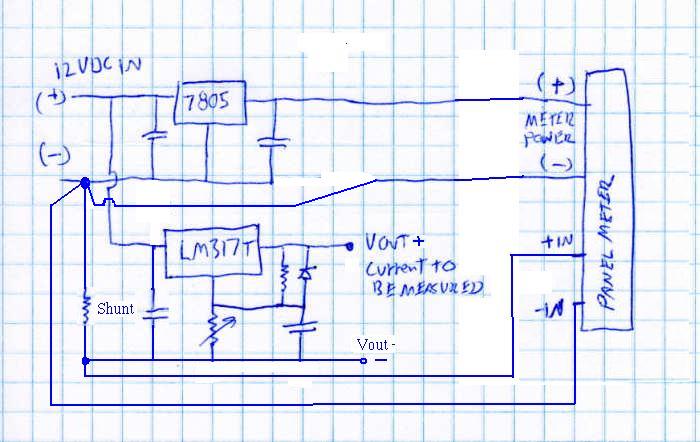 12VDC IN
(+)
7805
(+)
METER
POWER
(-)
(-)
PANEL METER
LM317T
VOUT +
CURRENT TO
BE MEASURED
+IN
-IN
Shunt
Vout -